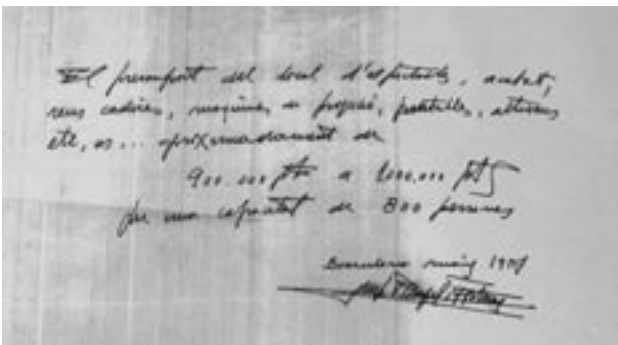 El pressupost del local d'espectacles, acabat,
sens cadires, maquines de projecció, pantalles, altaveus
etc, es... aproximadament de
900.000 pts a 1.000.000 pts
per una capacitat de 800 persones
Barcelona maig 19